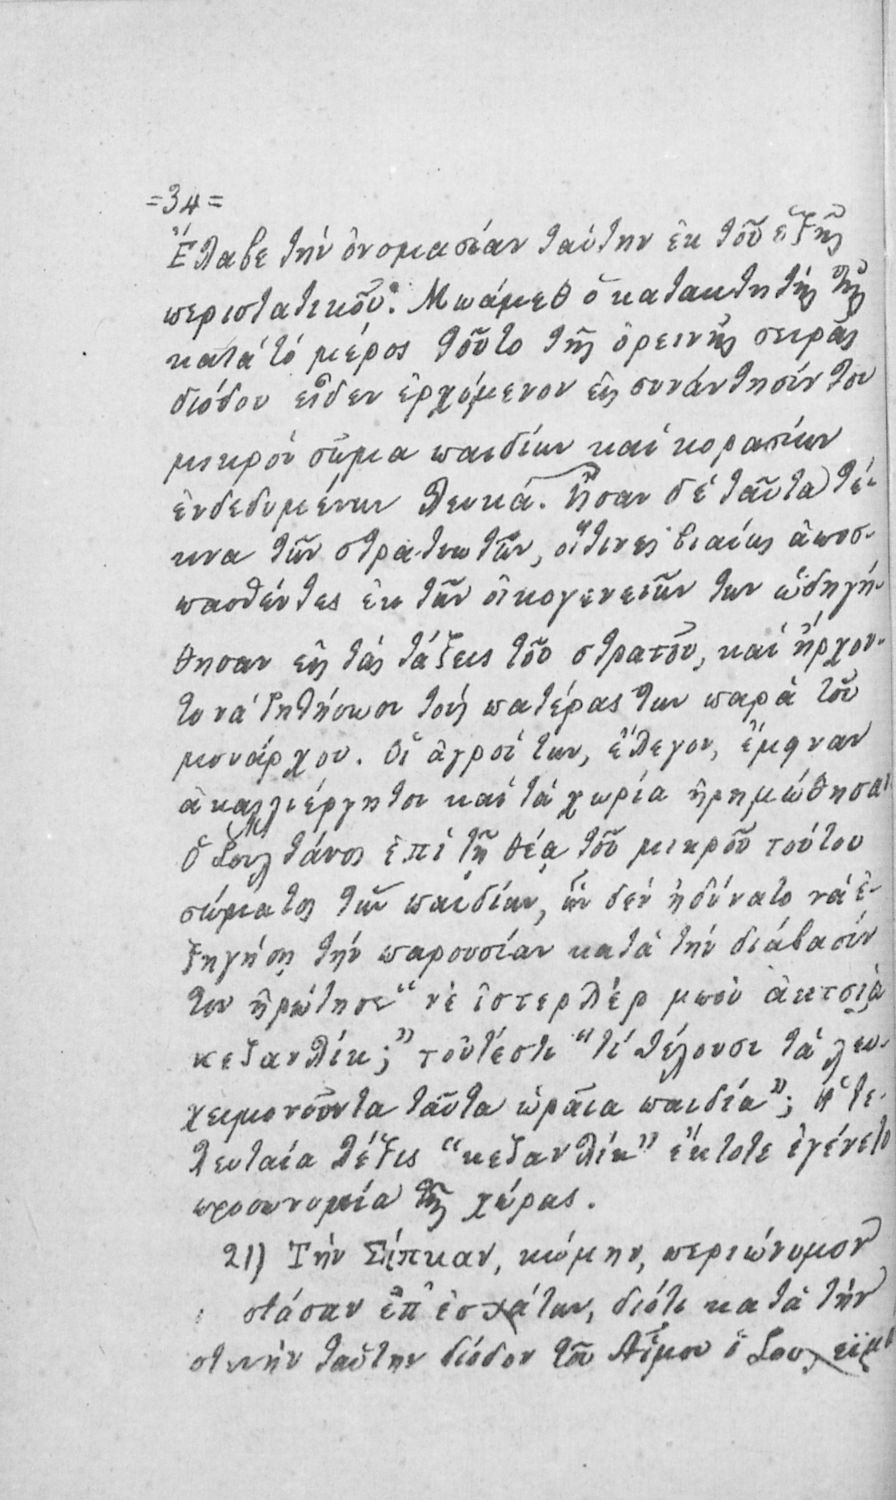 =34=
Ἔλαβε τὴν ὀνομασίαν ταύτην ἐκ τοῦ ἑξῆς
περιστατικοῦ. Μωάμεθ ὁ κατακτητὴς τῆς
κατὰ τὸ μέρος τοῦτο τῆς ὀρεινῆς σειρᾶς
διόδου εἶδεν ἐρχόμενον εἰς συνάντησίν του
μικρὸν σῶμα παιδίων καὶ κορασίων
ἐνδεδυμένων λευκά. Ἦσαν δὲ ταῦτα τέ-
κνα τῶν στρατιωτῶν, οἵτινες βιαίως ἀποσ-
πασθέντες ἐκ τῶν οἰκογενειῶν των ὡδηγή-
θησαν εἰς τὰς τάξεις τοῦ στρατοῦ, καὶ ἤρχον-
το νὰ ζητήσωσι τοὺς πατέρας των παρὰ τοῦ
μονάρχου. Οἱ ἀγροί των, ἔλεγον, ἔμειναν
ἀκαλλιέργητοι καὶ τὰ χωρία ἠρημώθησαν
Ὁ Σουλτάνος ἐπὶ τῇ θέᾳ τοῦ μικροῦ τούτου
σώματος τῶν παιδίων, ὧν δὲν ἠδύνατο νὰ ἐ-
ξηγήσῃ τὴν παρουσίαν κατὰ τὴν διάβασίν
του ἠρώτησε "νὲ ἰστερλὲρ μποὺ ἀκτσιὰ
κεζανλίκ;" τοὐτέστι "τί θέλουσι τὰ λευ-
χειμονοῦντα ταῦτα ὡραῖα παιδία"; Ἡ τε-
λευταία λέξις "κεζανλίκ" ἔκτοτε ἐγένετο
προσωνυμία τῆς χώρας.
21) Τὴν Σίπκαν, κώμην, περιώνυμον
στᾶσαν ἐπ' ἐσχάτων, διότι κατὰ τὴν
στενὴν ταύτην δίοδον τοῦ Αἵμου ὁ Σουλεϊμὰ